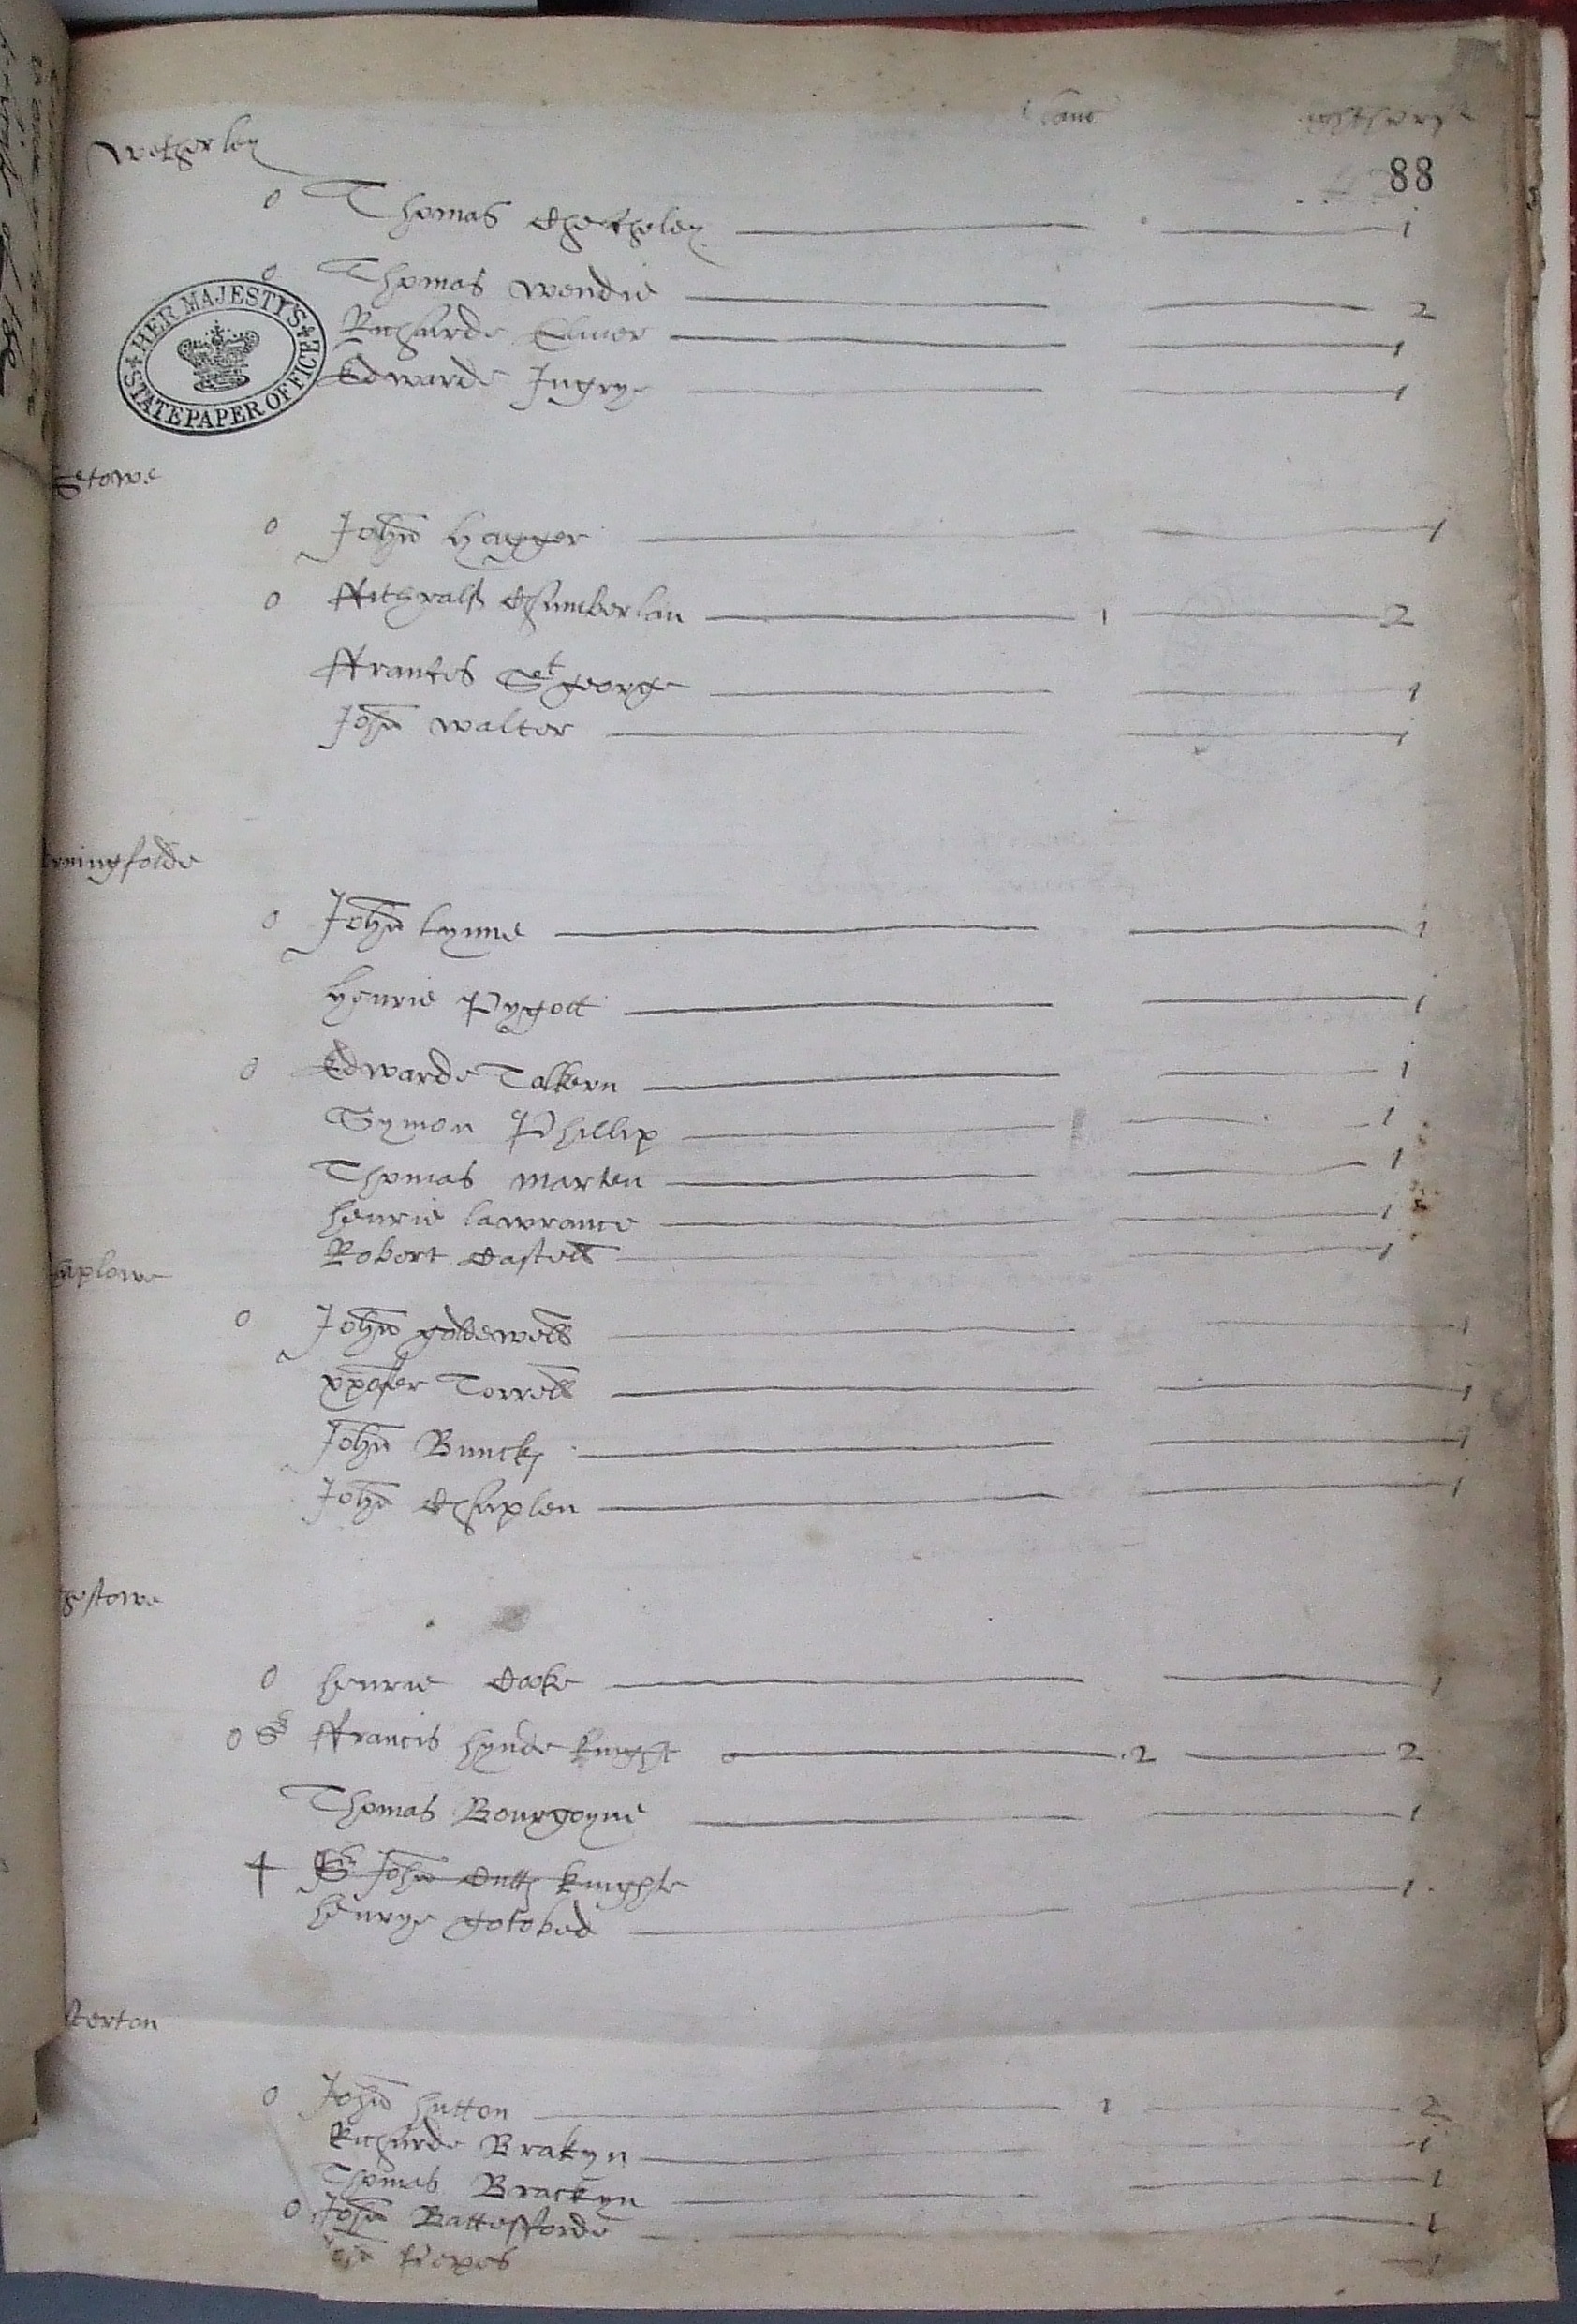 88
Wetherley
o Thomas Checheley 1
o Thomas Wendie 2
HER MAJESTY'S STATE PAPER OFFICE
Richarde Elmer 1
Edwarde Ingrye 1
Stowe
o John Hagger 1
o ffithralfh Chamberlan 1 2
ffrancis St george 1
John Walter 1
rmingforde
o John Lynne 1
Henrie Pygott 1
o Edwarde Talkern 1
Symon Phillip 1
Thomas Marten 1
Henrie Lawrance 1
Robert Castell 1
aplowe
o John goldewell 1
xpofer Torrell 1
John Buncke 1
John Chaplen 1
hestowe
o Henrie Cooke 1
o Sr ffrancis Hynde knight 2 2
Thomas Bourgoyne 1
Sr John Cutts knyghte
Henrye gotobed 1
sterton
o John Hutton 1 2
Richarde Brakyn 1
Thomas Brackyn 1
o John Battesfforde 1
Pepes 1